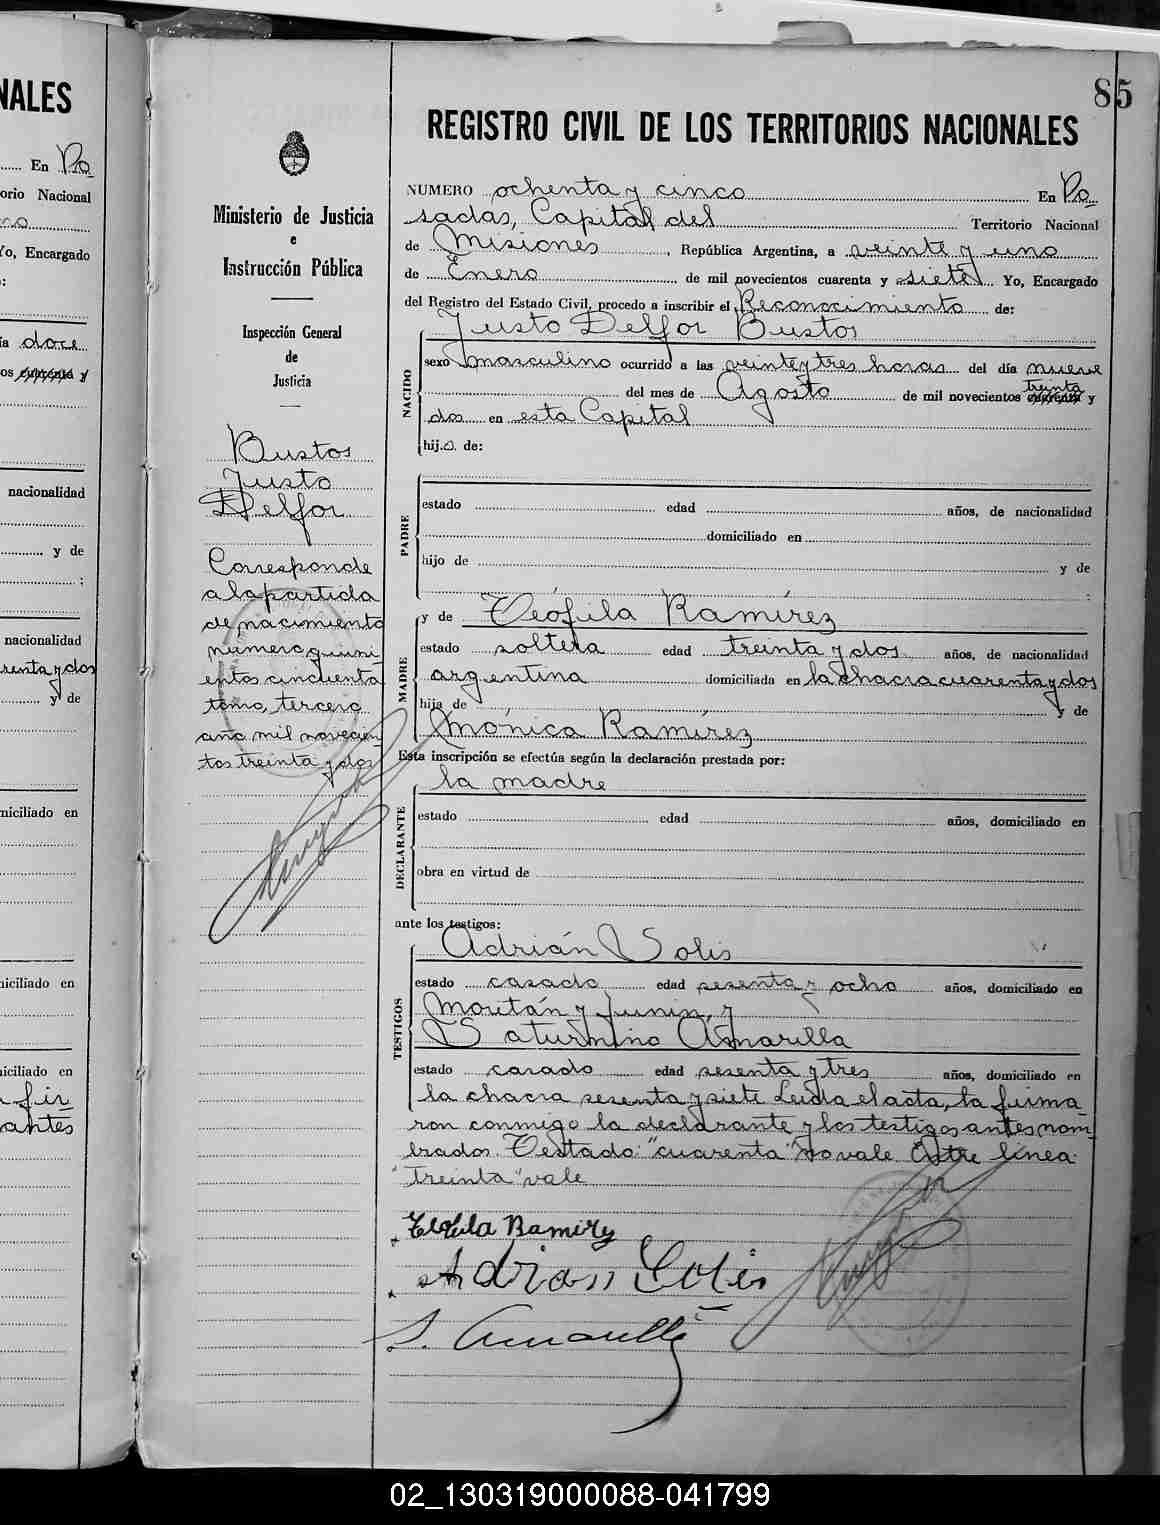 NALES
En Po
orio Nacional
no
Yo, Encargado
:
ia doce
os cuarenta y
nacionalidad
y de
:
nacionalidad
renta y dos
y de
niciliado en
niciliado en
niciliado en
fir
antes
85
REGISTRO CIVIL DE LOS TERRITORIOS NACIONALES
Ministerio de Justicia
e
Instrucción Pública
Inspección General
de
Justicia
Bustos
Justo
Delfor
Corresponde
a la partida
de nacimiento
número quini-
entos cincuenta
tomo, tercero
año mil novecien
tos treinta y dos
NUMERO ochenta y cinco En Po
sadas, Capital del Territorio Nacional
de Misiones, República Argentina, a veinte y uno
de Enero de mil novecientos cuarenta y siete Yo, Encargado
del Registro del Estado Civil, procedo a inscribir el Reconocimiento de:
Justo Delfor Bustos
NACIDO
sexo masculino ocurrido a las veinte y tres horas del día nueve
treinta
del mes de Agosto de mil novecientos cuarenta y
dos en esta Capital
hijo de:
PADRE
estado edad años, de nacionalidad
domiciliado en
hijo de y de
:
MADRE
y de Teófila Ramírez
estado soltera edad treinta y dos años, de nacionalidad
argentina domiciliada en la chacra cuarenta y dos
hija de y de
Mónica Ramírez
Esta inscripción se efectúa según la declaración prestada por:
la madre
DECLARANTE
estado edad años, domiciliado en
obra en virtud de
ante los testigos:
TESTIGOS
Adrián Solis
estado casado edad sesenta y ocho años, domiciliado en
y Junin, y
Saturnino Amarilla
estado casado edad sesenta y tres años, domiciliado en
la chacra sesenta y siete Leida el acta, la firma-
ron conmigo la declarante y los testigos antes nom-
brados. Testado: "cuarenta" no vale. Entre línea:
"treinta" vale
Teofila Ramirez
Adrian Solis
S. Amarilla
02_130319000088-041799